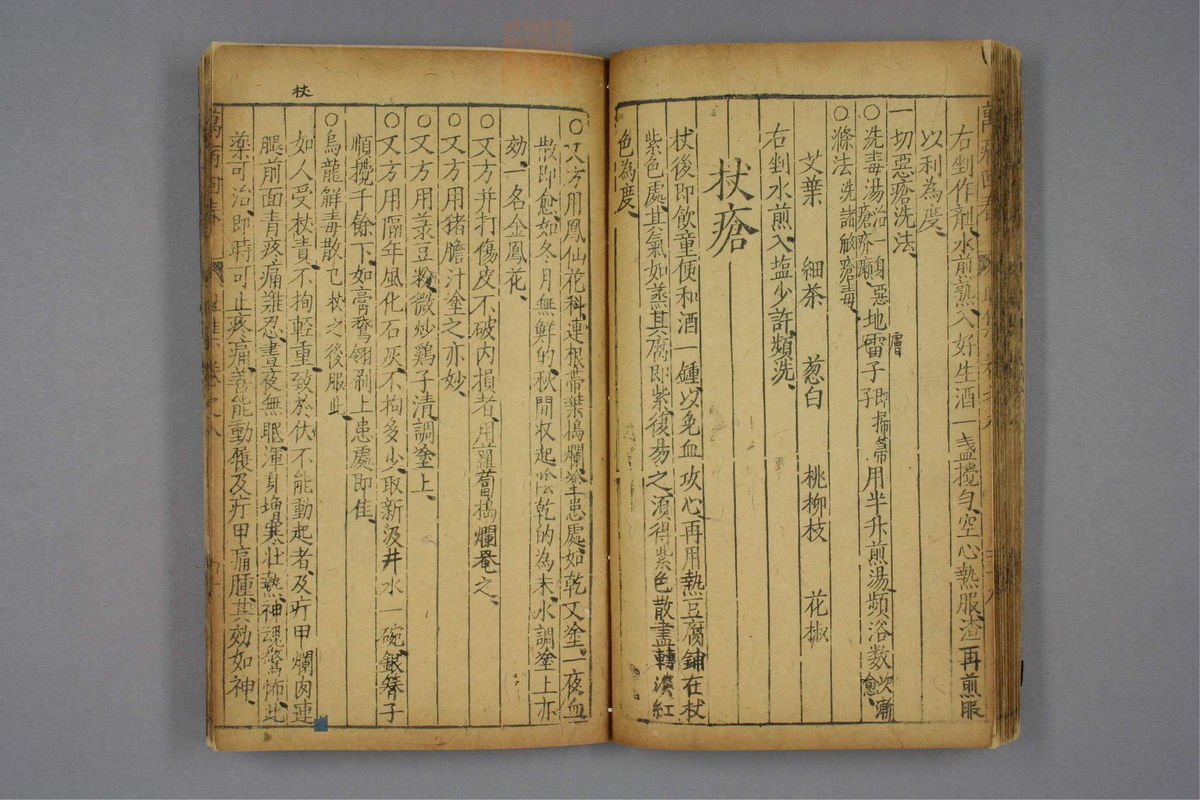 右剉作劑水煎熟入好生酒一盞攪勻空心熱服渣再煎服
以利為度
一切惡瘡洗法
○洗毒湯治瘡疥癩身惡膚地雷子即掃箒子用半升煎湯頻浴数次漸愈
○滌法洗諸般瘡毒
艾葉 細茶 葱白 桃柳枝 花椒
右剉水煎入塩少許頻洗
杖瘡
杖後即飲童便和酒一鍾以免血攻心再用熱豆腐鋪在杖
紫色處其氣如蒸其腐即紫復易之須得紫色散盡轉淡紅
色為度
○又方用鳳仙花科連根帶葉搗爛塗患處如乾又塗一夜血
散即愈如冬月無鮮的秋間収起陰乾的為末水調塗上亦
効一名金鳳花
○又方并打傷皮不破内損者用蘿蔔搗爛罨之
○又方用猪膽汁塗之亦妙
○又方用菉豆粉微炒鷄子清調塗上
○又方用隔年風化石灰不拘多少取新汲井水一碗銀簪子
順攪千餘下如膏鵞翎刷上患處即佳
○烏龍解毒散已杖之後服此
如人受杖責不拘輕重致於伏不能動起者及疔甲爛肉連
腿前面青疼痛難忍晝夜無眠渾身增寒壯熱神魂驚怖此
藥可治即時可止疼痛善能動履及疔甲痛腫其効如神
杖